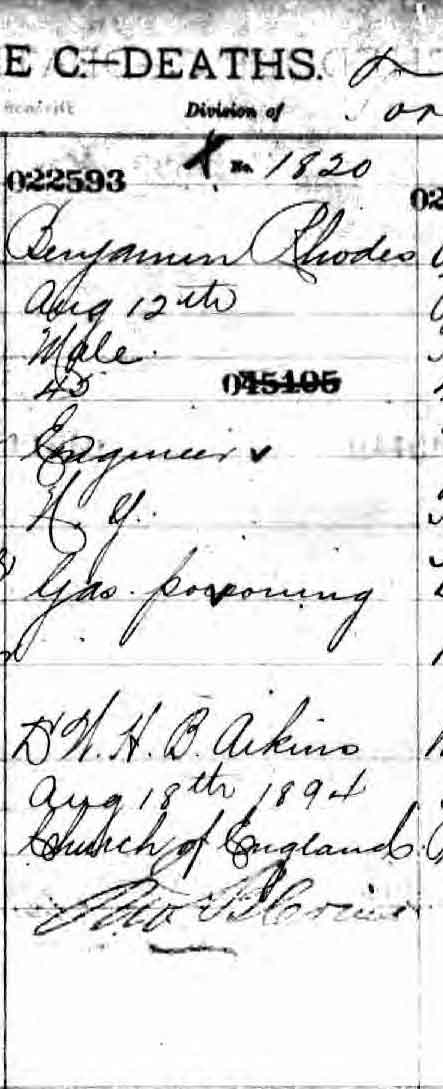 E C.—DEATHS.
Division of
No. 1820
022593
Benjamin Rhodes
Aug 12th
Male
45
045105
Engineer
N. Y.
Gas poisoning
Dr W. H. B. Aikins
Aug 18th 1894
Church of England